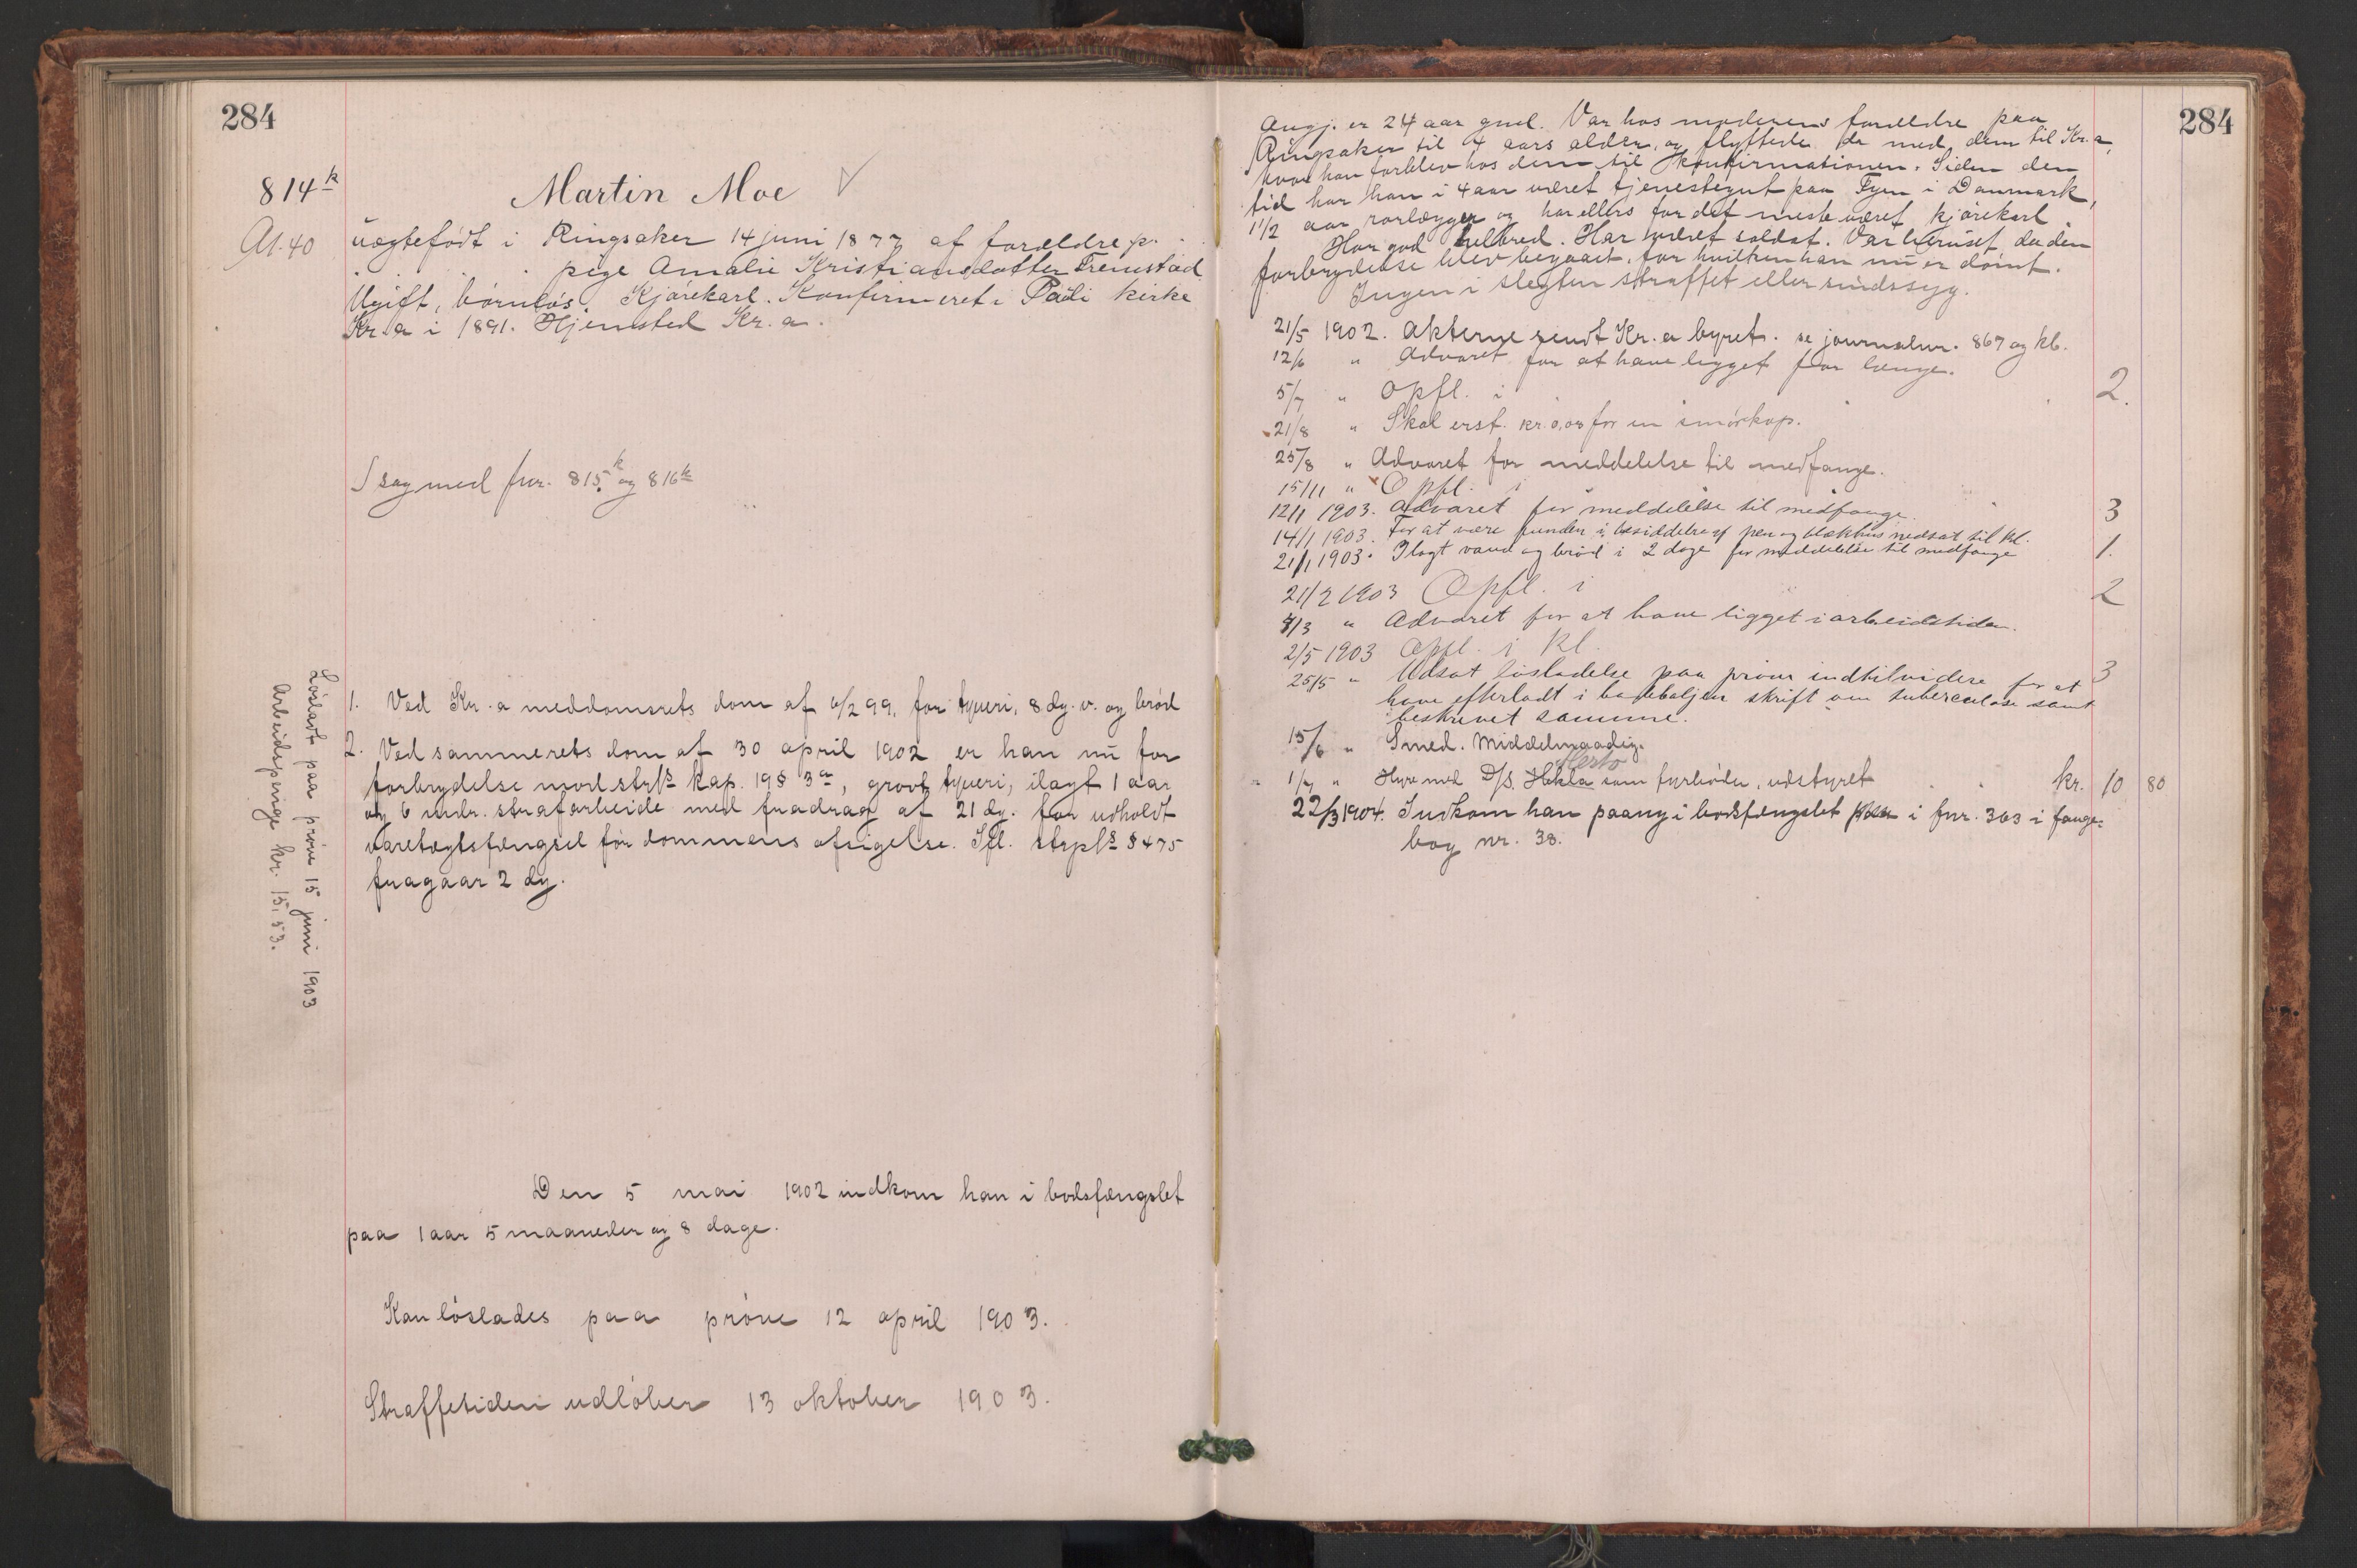 284
814k
At. 40
Martin Moe
uægtefødt i Ringsaker 14 juni 1877 af forældre p.
pige Amalie Kristiansdatter Fremstad
Ugift, børnløs. Kjørekarl. Konfirmeret i Pauli kirke
Kr.a i 1891. Hjemsted Kr.a.
I sag med fnr. 815k og 816k
Løsladt paa prøve 15 juni 1903
Arbeidspenge kr. 15,53.
1. Ved Kr.a meddomsrets dom af 6/2 99, for tyveri, 8 dg. v. og brød
2. Ved sammerets dom af 30 april 1902 er han nu for
forbrydelse mod strfls kap. 19 § 3a, grovt tyveri, ilagt 1 aar
og 6 mdr. strafarbeide med fradrag af 21 dg. for udholdt
varetægtsfængsel før dommens afsigelse. Ifl. strpls § 475
fragaar 2 dg.
Den 5 mai 1902 indkom han i bodsfængslet
paa 1 aar 5 maaneder og 8 dage.
Kan løslades paa prøve 12 april 1903.
Straffetiden udløber 13 oktober 1903.
284
Angj. er 24 aar gml. Var hos moderens forældre paa
Ringsaker til 4 aars alder, og flyttede da med dem til Kr.a,
hvor han forblev hos dem til konfirmationen. Siden den
tid har han i 4 aar været tjenestegut paa Fyen i Danmark,
1 1/2 aar rørlægger og har ellers for det meste været kjørekarl.
Har god helbred. Har været soldat. Var beruset da den
forbrydelse blev begaaet, for hvilken han nu er dømt.
Ingen i slegten straffet eller sindssyg.
21/5 1902. Akterne sendt Kr.a byret. se journalnr. 867 og kb.
12/6 " Advaret for at have ligget for længe.
5/7 " Opfl. i 2.
21/8 " Skal erst. kr. 0,08 for en smørkop.
25/8 " Advaret for meddelelse til medfange.
15/11 " Opfl. i 3
12/1 1903. Advaret for meddelelse til medfange.
14/1 1903. For at være funden i besiddelse af pen og blækhus nedsat til kl. 1.
21/1 1903. Ilagt vand og brød i 2 dage for meddelelse til medfange
21/2 1903 Opfl. i 2
4/3 " Advaret for at have ligget i arbeidstiden.
2/5 1903 Opfl. i Kl. 3
25/5 " Udsat løsladelse paa prøve indtil videre for at
have efterladt i badebaljen skrift om tuberculose samt
beskrevet samme.
15/6 " Smed. Middelmaadig.
Hesto
1/7 " Hyre med D/S. Hekla som fyrbøder, udstyret kr. 10 80
22/3 1904. Indkom han paany i bodsfængslet i fnr. 363 i fange-
bog nr. 38.